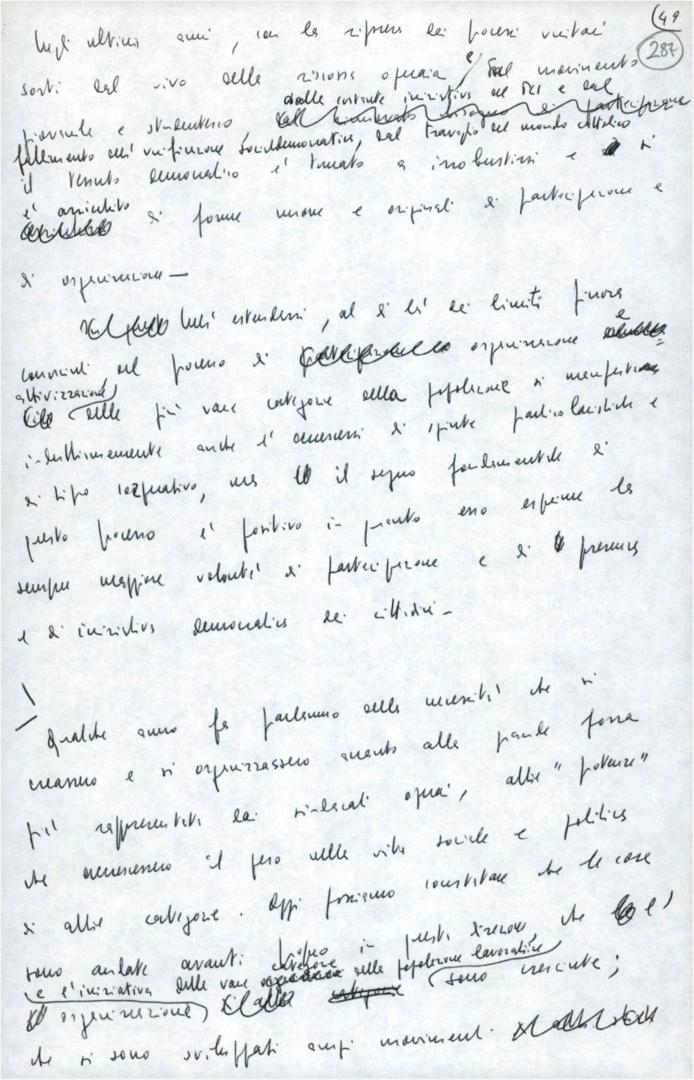 49
287
Negli ultimi anni, con la ripresa dei processi unitari
sorti dal vivo della riscossa operaia e dal movimento
dalle costante iniziativa del PCI e dal
giovanile e studentesco
fallimento dell'unificazione socialdemocratica, dal travaglio del mondo cattolico
il tessuto democratico è tornato a irrobustirsi e si
è arricchito
di forme nuove e originali di partecipazione e
di organizzazione —
Nell'estendersi, al di là dei limiti finora
conosciuti del processo di organizzazione e
attivizzazione
delle più varie categorie della popolazione si manifestano
indubbiamente anche e accrescersi di spinte particolaristiche e
di tipo corporativo, ma il segno fondamentale di
questo processo è positivo in quanto esso esprime la
sempre maggiore volontà di partecipazione e di presenza
e di iniziativa democratica dei cittadini —
Qualche anno fa parlammo della necessità che si
creassero e si organizzassero accanto alla grande forza
già rappresentata dai sindacati operai, altre "potenze"
che accrescessero il peso nella vita sociale e politica
di altre categorie. Oggi possiamo constatare che le cose
sono andate avanti in questa direzione, che è
e l'iniziativa delle varie categorie della popolazione lavoratrice
organizzazione sono cresciute;
che si sono sviluppati ampi movimenti.